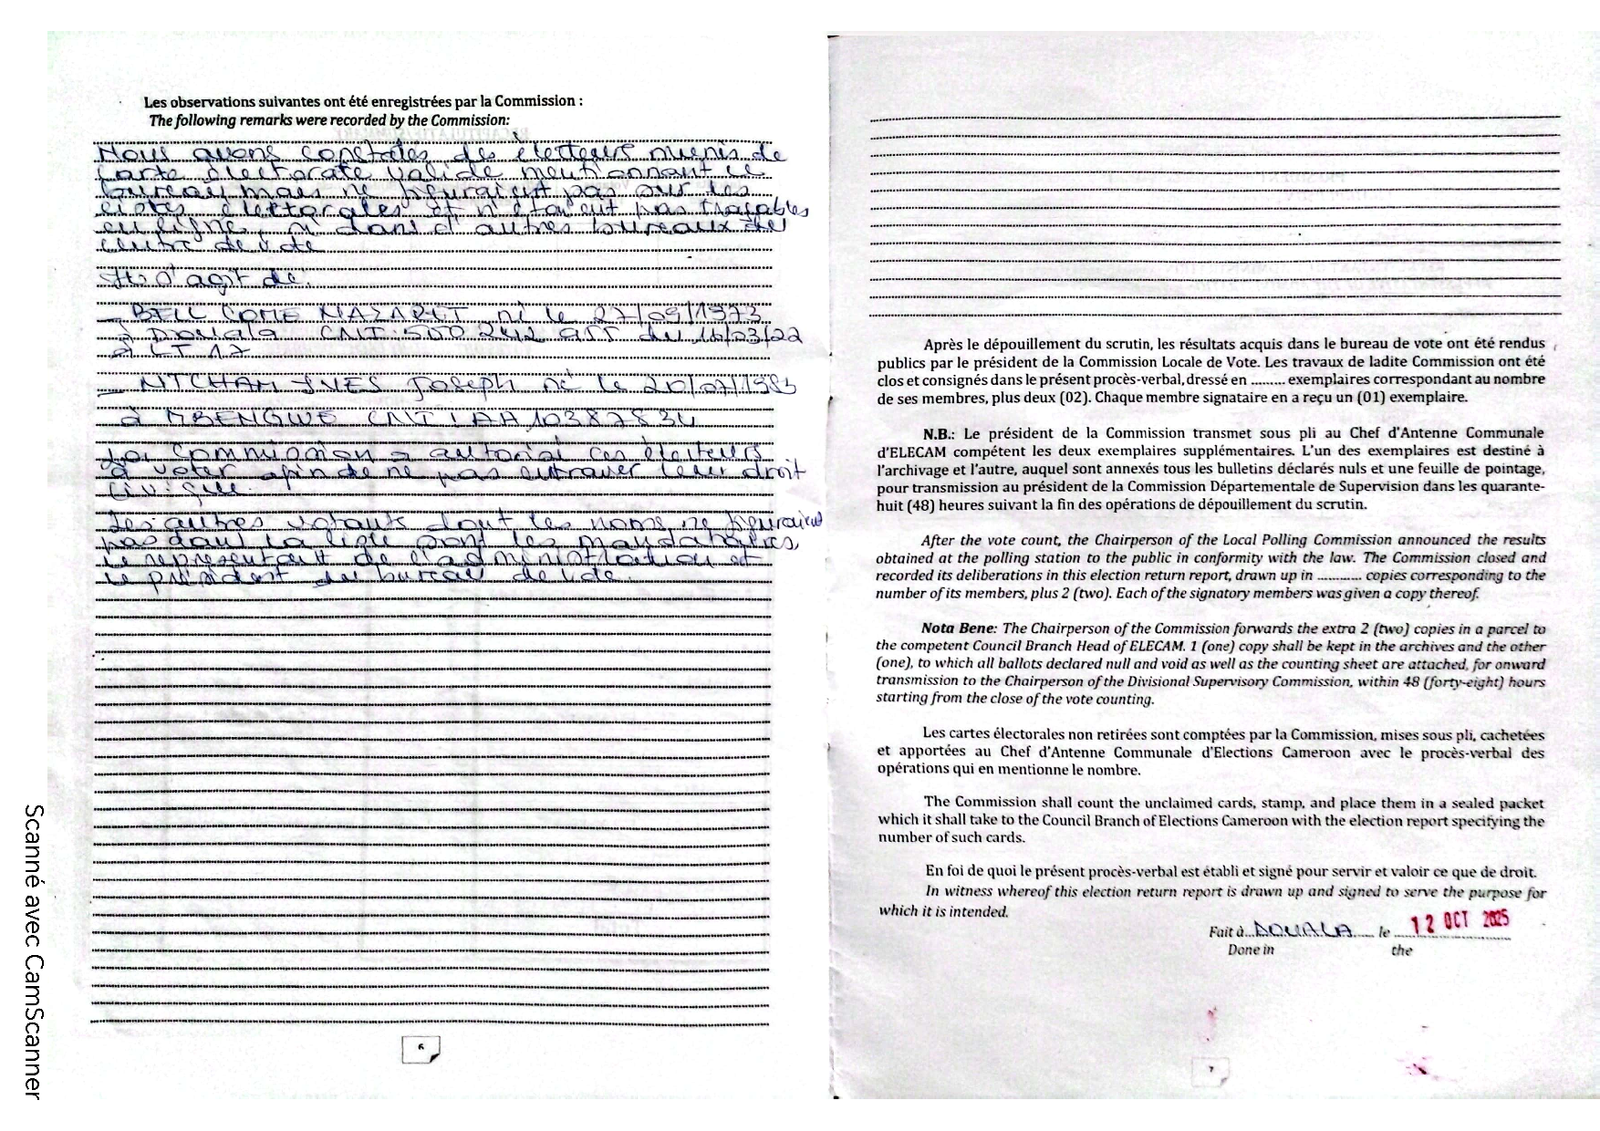 Les observations suivantes ont été enregistrées par la Commission :
The following remarks were recorded by the Commission:
Nous avons constatés des électeurs munis de
carte électorale valide mentionnant le
bureau mais ne figuraient pas sur les
listes électorales et n'étaient pas traçables
en ligne, ni dans d'autres bureaux du
centre de vote
Il s'agit de:
- BELL COME NAZARET né le 27/09/1973
à Douala CNI: 500 242 du 16/03/22
à LT 17
- NTCHAM YVES Joseph né le 20/07/
à MBENGWE CNI: AA 10387834
La Commission a autorisé ces électeurs
à voter afin de ne pas entraver leur droit
civique.
Les autres votants dont les noms ne figuraient
pas dans la liste sont les mandataires,
le représentant de l'administration et
le président du bureau de vote.
6
Après le dépouillement du scrutin, les résultats acquis dans le bureau de vote ont été rendus
publics par le président de la Commission Locale de Vote. Les travaux de ladite Commission ont été
clos et consignés dans le présent procès-verbal, dressé en ......... exemplaires correspondant au nombre
de ses membres, plus deux (02). Chaque membre signataire en a reçu un (01) exemplaire.
N.B.: Le président de la Commission transmet sous pli au Chef d'Antenne Communale
d'ELECAM compétent les deux exemplaires supplémentaires. L'un des exemplaires est destiné à
l'archivage et l'autre, auquel sont annexés tous les bulletins déclarés nuls et une feuille de pointage,
pour transmission au président de la Commission Départementale de Supervision dans les quarante-
huit (48) heures suivant la fin des opérations de dépouillement du scrutin.
After the vote count, the Chairperson of the Local Polling Commission announced the results
obtained at the polling station to the public in conformity with the law. The Commission closed and
recorded its deliberations in this election return report, drawn up in ............ copies corresponding to the
number of its members, plus 2 (two). Each of the signatory members was given a copy thereof.
Nota Bene: The Chairperson of the Commission forwards the extra 2 (two) copies in a parcel to
the competent Council Branch Head of ELECAM. 1 (one) copy shall be kept in the archives and the other
(one), to which all ballots declared null and void as well as the counting sheet are attached, for onward
transmission to the Chairperson of the Divisional Supervisory Commission, within 48 (forty-eight) hours
starting from the close of the vote counting.
Les cartes électorales non retirées sont comptées par la Commission, mises sous pli, cachetées
et apportées au Chef d'Antenne Communale d'Elections Cameroon avec le procès-verbal des
opérations qui en mentionne le nombre.
The Commission shall count the unclaimed cards, stamp, and place them in a sealed packet
which it shall take to the Council Branch of Elections Cameroon with the election report specifying the
number of such cards.
En foi de quoi le présent procès-verbal est établi et signé pour servir et valoir ce que de droit.
In witness whereof this election return report is drawn up and signed to serve the purpose for
which it is intended.
Fait à DOUALA le 12 OCT 2025
Done in the
7
Scanné avec CamScanner